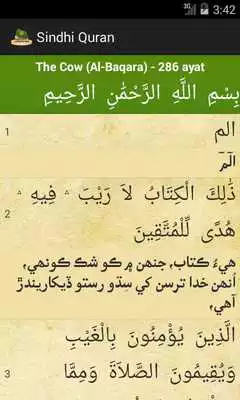 3G 3:42
Sindhi Quran
The Cow (Al-Baqara) - 286 ayat
بِسْمِ اللَّهِ الرَّحْمَٰنِ الرَّحِيمِ
1 الم
الۗمّۗ
ذَٰلِكَ الْكِتَابُ لَا رَيْبَ ۛ فِيهِ ۛ
2 هُدًى لِّلْمُتَّقِينَ
هيءُ ڪتاب، جنھن ۾ ڪو شڪ ڪونھي،
اُنھن خدا ترسن کي سِڌو رستو ڏيکاريندڙ
آھي
الَّذِينَ يُؤْمِنُونَ بِالْغَيْبِ
3 وَيُقِيمُونَ الصَّلَاةَ وَمِمَّا